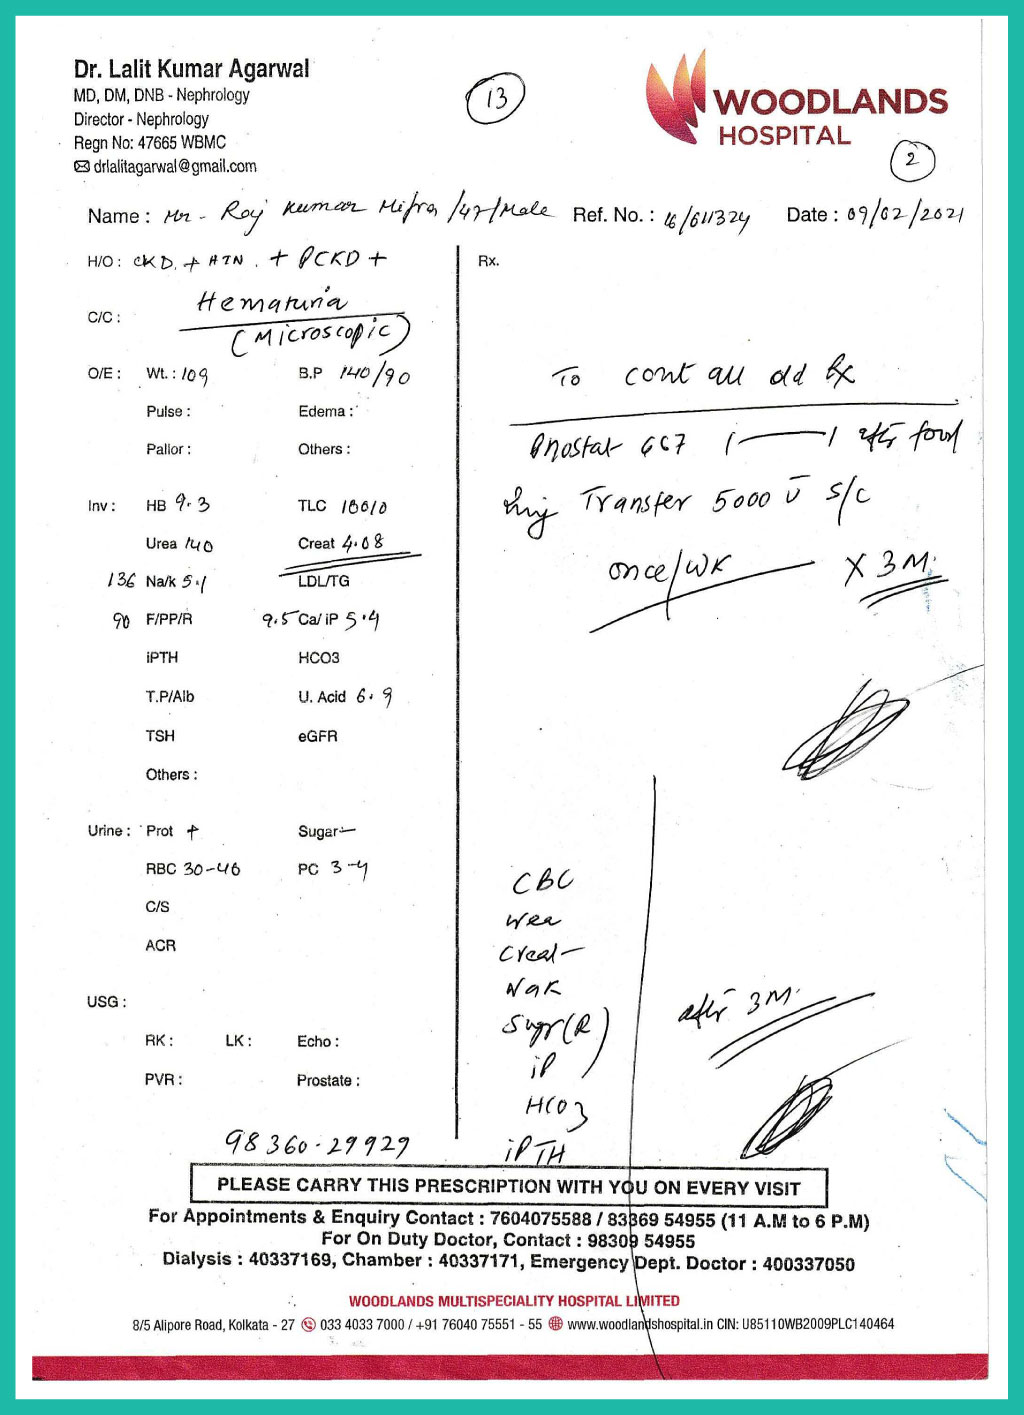 Dr. Lalit Kumar Agarwal
MD, DM, DNB - Nephrology
Director - Nephrology
Regn No: 47665 WBMC
drlalitagarwal@gmail.com
13
WOODLANDS
HOSPITAL
2
Name : Mr - Raj Kumar Misra /47/Male Ref. No. : 16/611324 Date : 09/02/2021
H/O : CKD. + HTN . + PCKD +
Rx.
Hematuria
C/C :
(Microscopic)
O/E : Wt. : 109 B.P 140/90
To cont all old Rx
Pulse : Edema :
Pallor : Others :
667 1 1 after food
Inv : HB 9.3 TLC 10010
Inj Transfer 5000 U S/C
Urea 140 Creat 4.08
once/WK X 3 M.
136 Na/k 5.1 LDL/TG
90 F/PP/R 9.5 Ca/ iP 5.4
iPTH HCO3
T.P/Alb U. Acid 6.9
TSH eGFR
Others :
Urine : Prot + Sugar -
RBC 30-40 PC 3-4
CBC
C/S
Urea
ACR
Creat
NaK
USG :
after 3M.
Sugr (R)
RK : LK : Echo :
iP
PVR : Prostate :
HCO3
98360-29929
iPTH
PLEASE CARRY THIS PRESCRIPTION WITH YOU ON EVERY VISIT
For Appointments & Enquiry Contact : 7604075588 / 83369 54955 (11 A.M to 6 P.M)
For On Duty Doctor, Contact : 98309 54955
Dialysis : 40337169, Chamber : 40337171, Emergency Dept. Doctor : 400337050
WOODLANDS MULTISPECIALITY HOSPITAL LIMITED
8/5 Alipore Road, Kolkata - 27 033 4033 7000 / +91 76040 75551 - 55 www.woodlandshospital.in CIN: U85110WB2009PLC140464